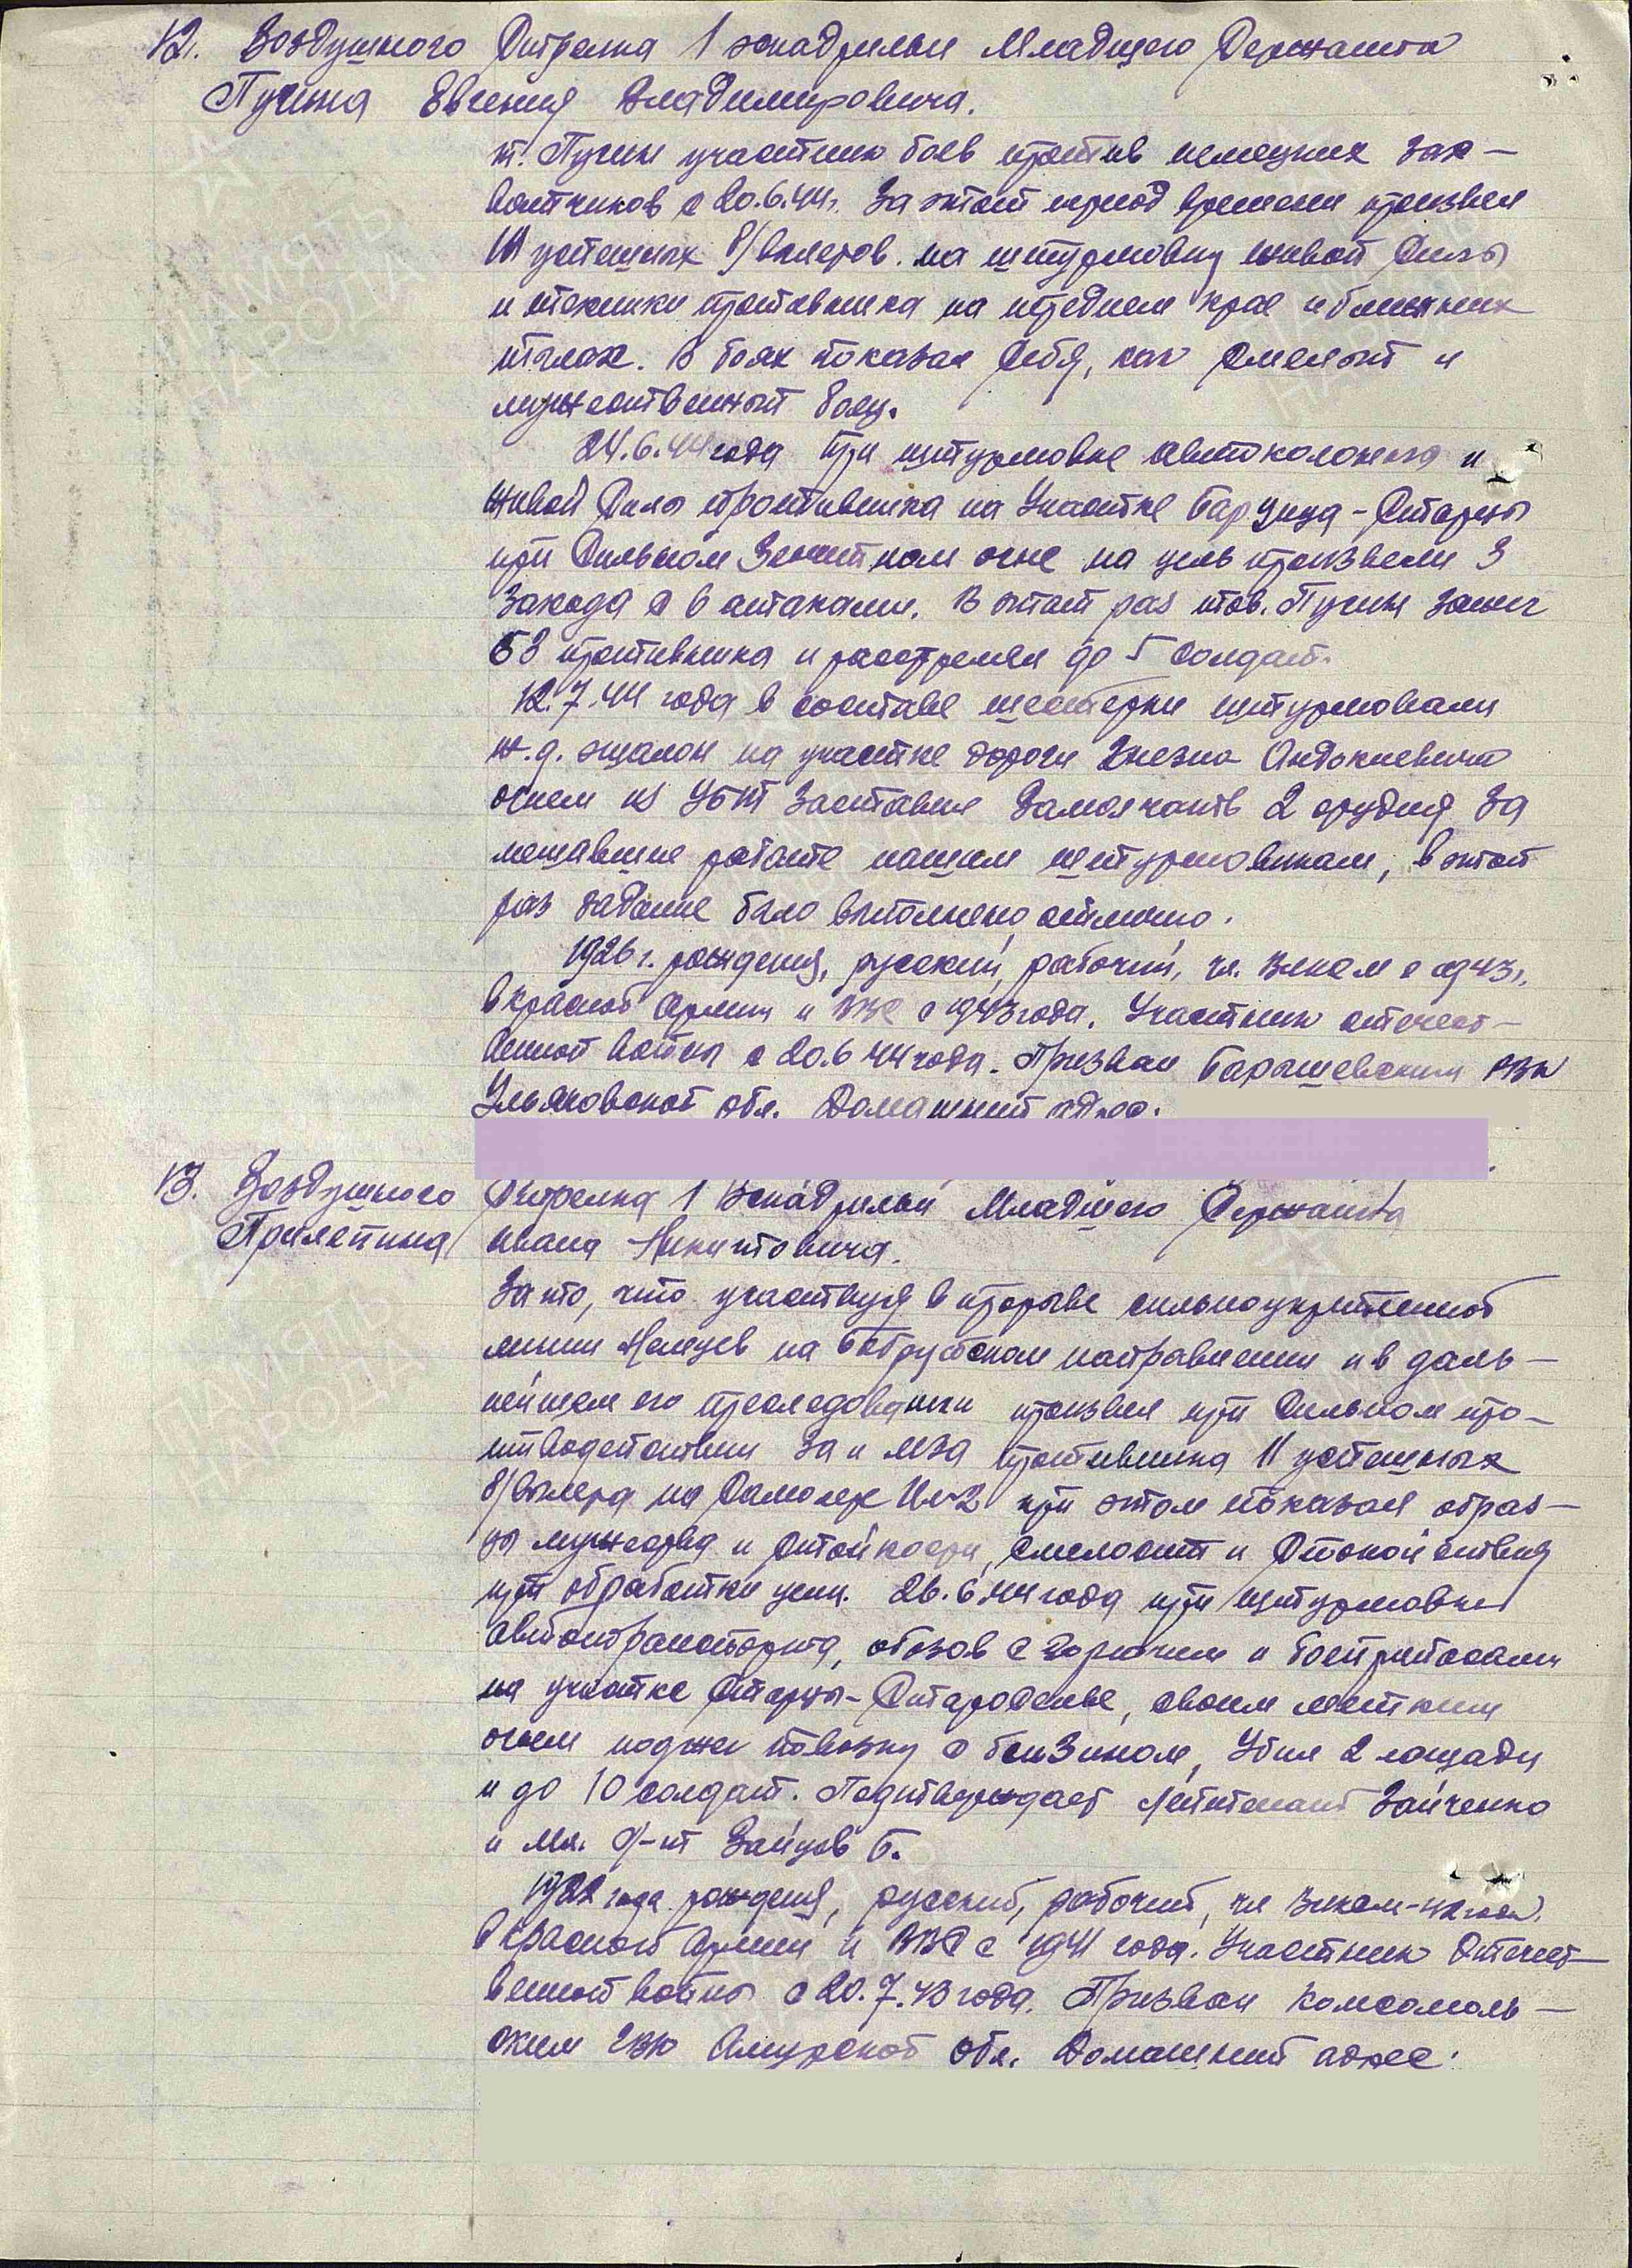 12. Воздушного Стрелка 1 эскадрильи Младшего Сержанта
Пучина Евгения Владимировича.
т. Пучин участник боев против немецких зах-
ватчиков с 20.6.44г. За этот период времени произвел
11 успешных б/вылетов на штурмовку живой силы
и техники противника на переднем крае и ближних
тылах. В боях показал себя, как смелый и
мужественный боец.
24.6.44 года при штурмовке автоколонны и
живой силы противника на участке Старцы
при сильном зенитном огне на цель произвели 3
захода с 6 атаками. В этот раз тов. Пучин зажег
противника и расстрелял до 5 солдат.
12.7.44 года в составе шестерки штурмовали
ж.д. эшалон на участке дороги Гнезно
огнем из УБТ заставил замолчать 2 орудия ЗА
мешавшие работать нашим штурмовикам, в этот
раз задание было выполнено отлично.
1926 г. рождения, русский, рабочий, чл. ВЛКСМ с 1943г.
в красной Армии и ВВС с 1943 года. Участник отечест-
венной войны с 20.6.44 года. Призван Барышевским РВК
Ульяновской обл. Домашний адрес:
13. Воздушного Стрелка 1 Эскадрильи Младшего Сержанта
Прилепина Ивана Никитовича.
За то, что участвуя в прорыве сильноукрепленной
линии Немцев на Бобруйском направлении и в даль-
нейшем его преследовании произвел при сильном про-
тиводействии ЗА и МЗА противника 11 успешных
б/вылета на самолете Ил-2 при этом показал образ-
цы мужества и стойкости, смелости и спокойствия
при обработке цели. 26.6.44 года при штурмовке
автотранспорта, обозов с горючим и боеприпасами
на участке Старцы-, своим метким
огнем поджег повозку с бензином, убил 2 лошади
и до 10 солдат. Подтверждает лейтенант Зайченко
и мл. л-нт Зайцов Б.
1922 года рождения, русский, рабочий, чл ВЛКСМ
в Красной Армии и ВВС с 1941 года. Участник Отечест-
венной войны с 20.7.43 года. Призван Комсомоль-
ским ГВК Амурской обл. Домашний адрес:
ПАМЯТЬ
НАРОДА